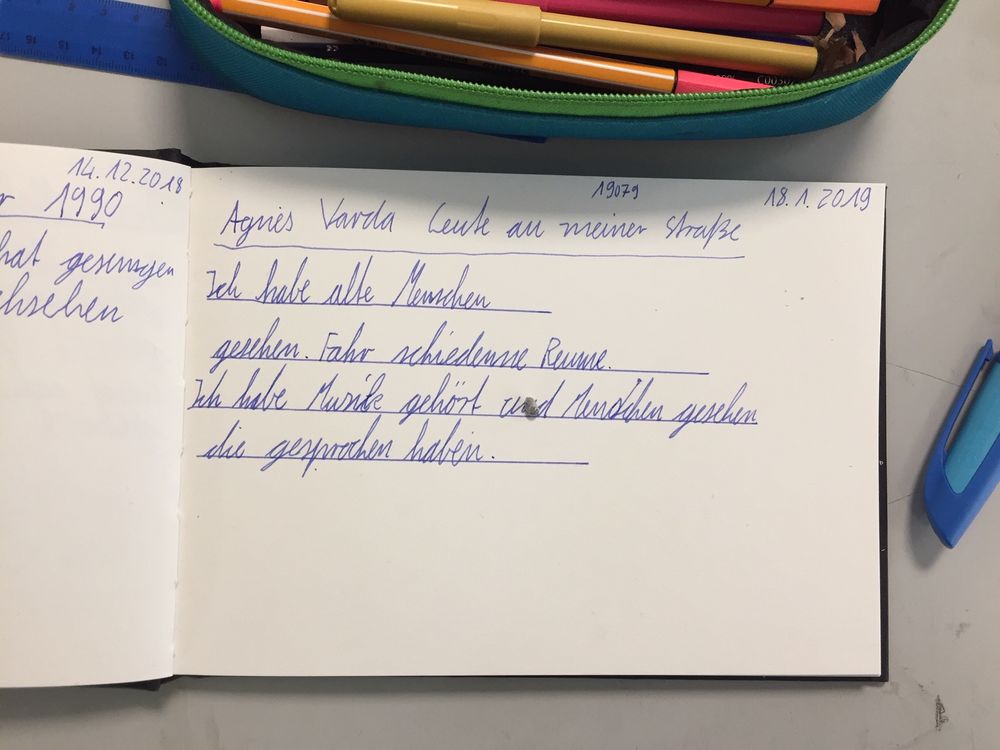 14.12.2018
1990
hat gesungen
19079
18.1.2019
Agnès Varda Leute an meiner Straße
Ich habe alte Menschen
gesehen. Fahr schiedenne Reume.
Ich habe Musik gehört und Menschen gesehen
die gesprochen haben.